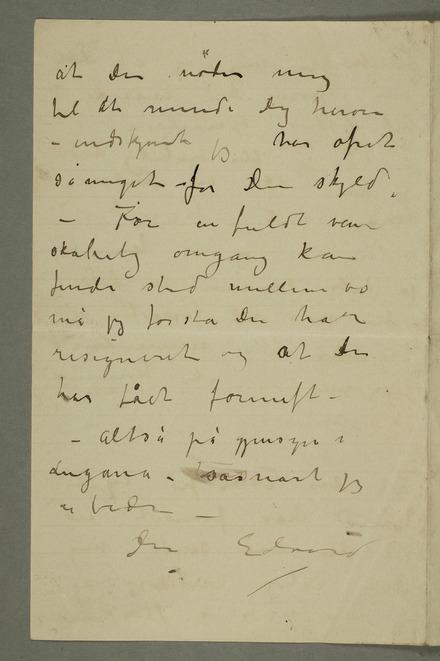 at Du nøder mig
til at minde Dig herom
– endskjønt jeg har ofret
så meget for Din skyld.
– Før en fuldt ven-
skabelig omgang kan
finde sted mellem os
må jeg forstå Du har
resigneret og at Du
har fået fornuft –
– altså på gjensyn i
Lugano – såsnart jeg
er bedre –
Din Edvard